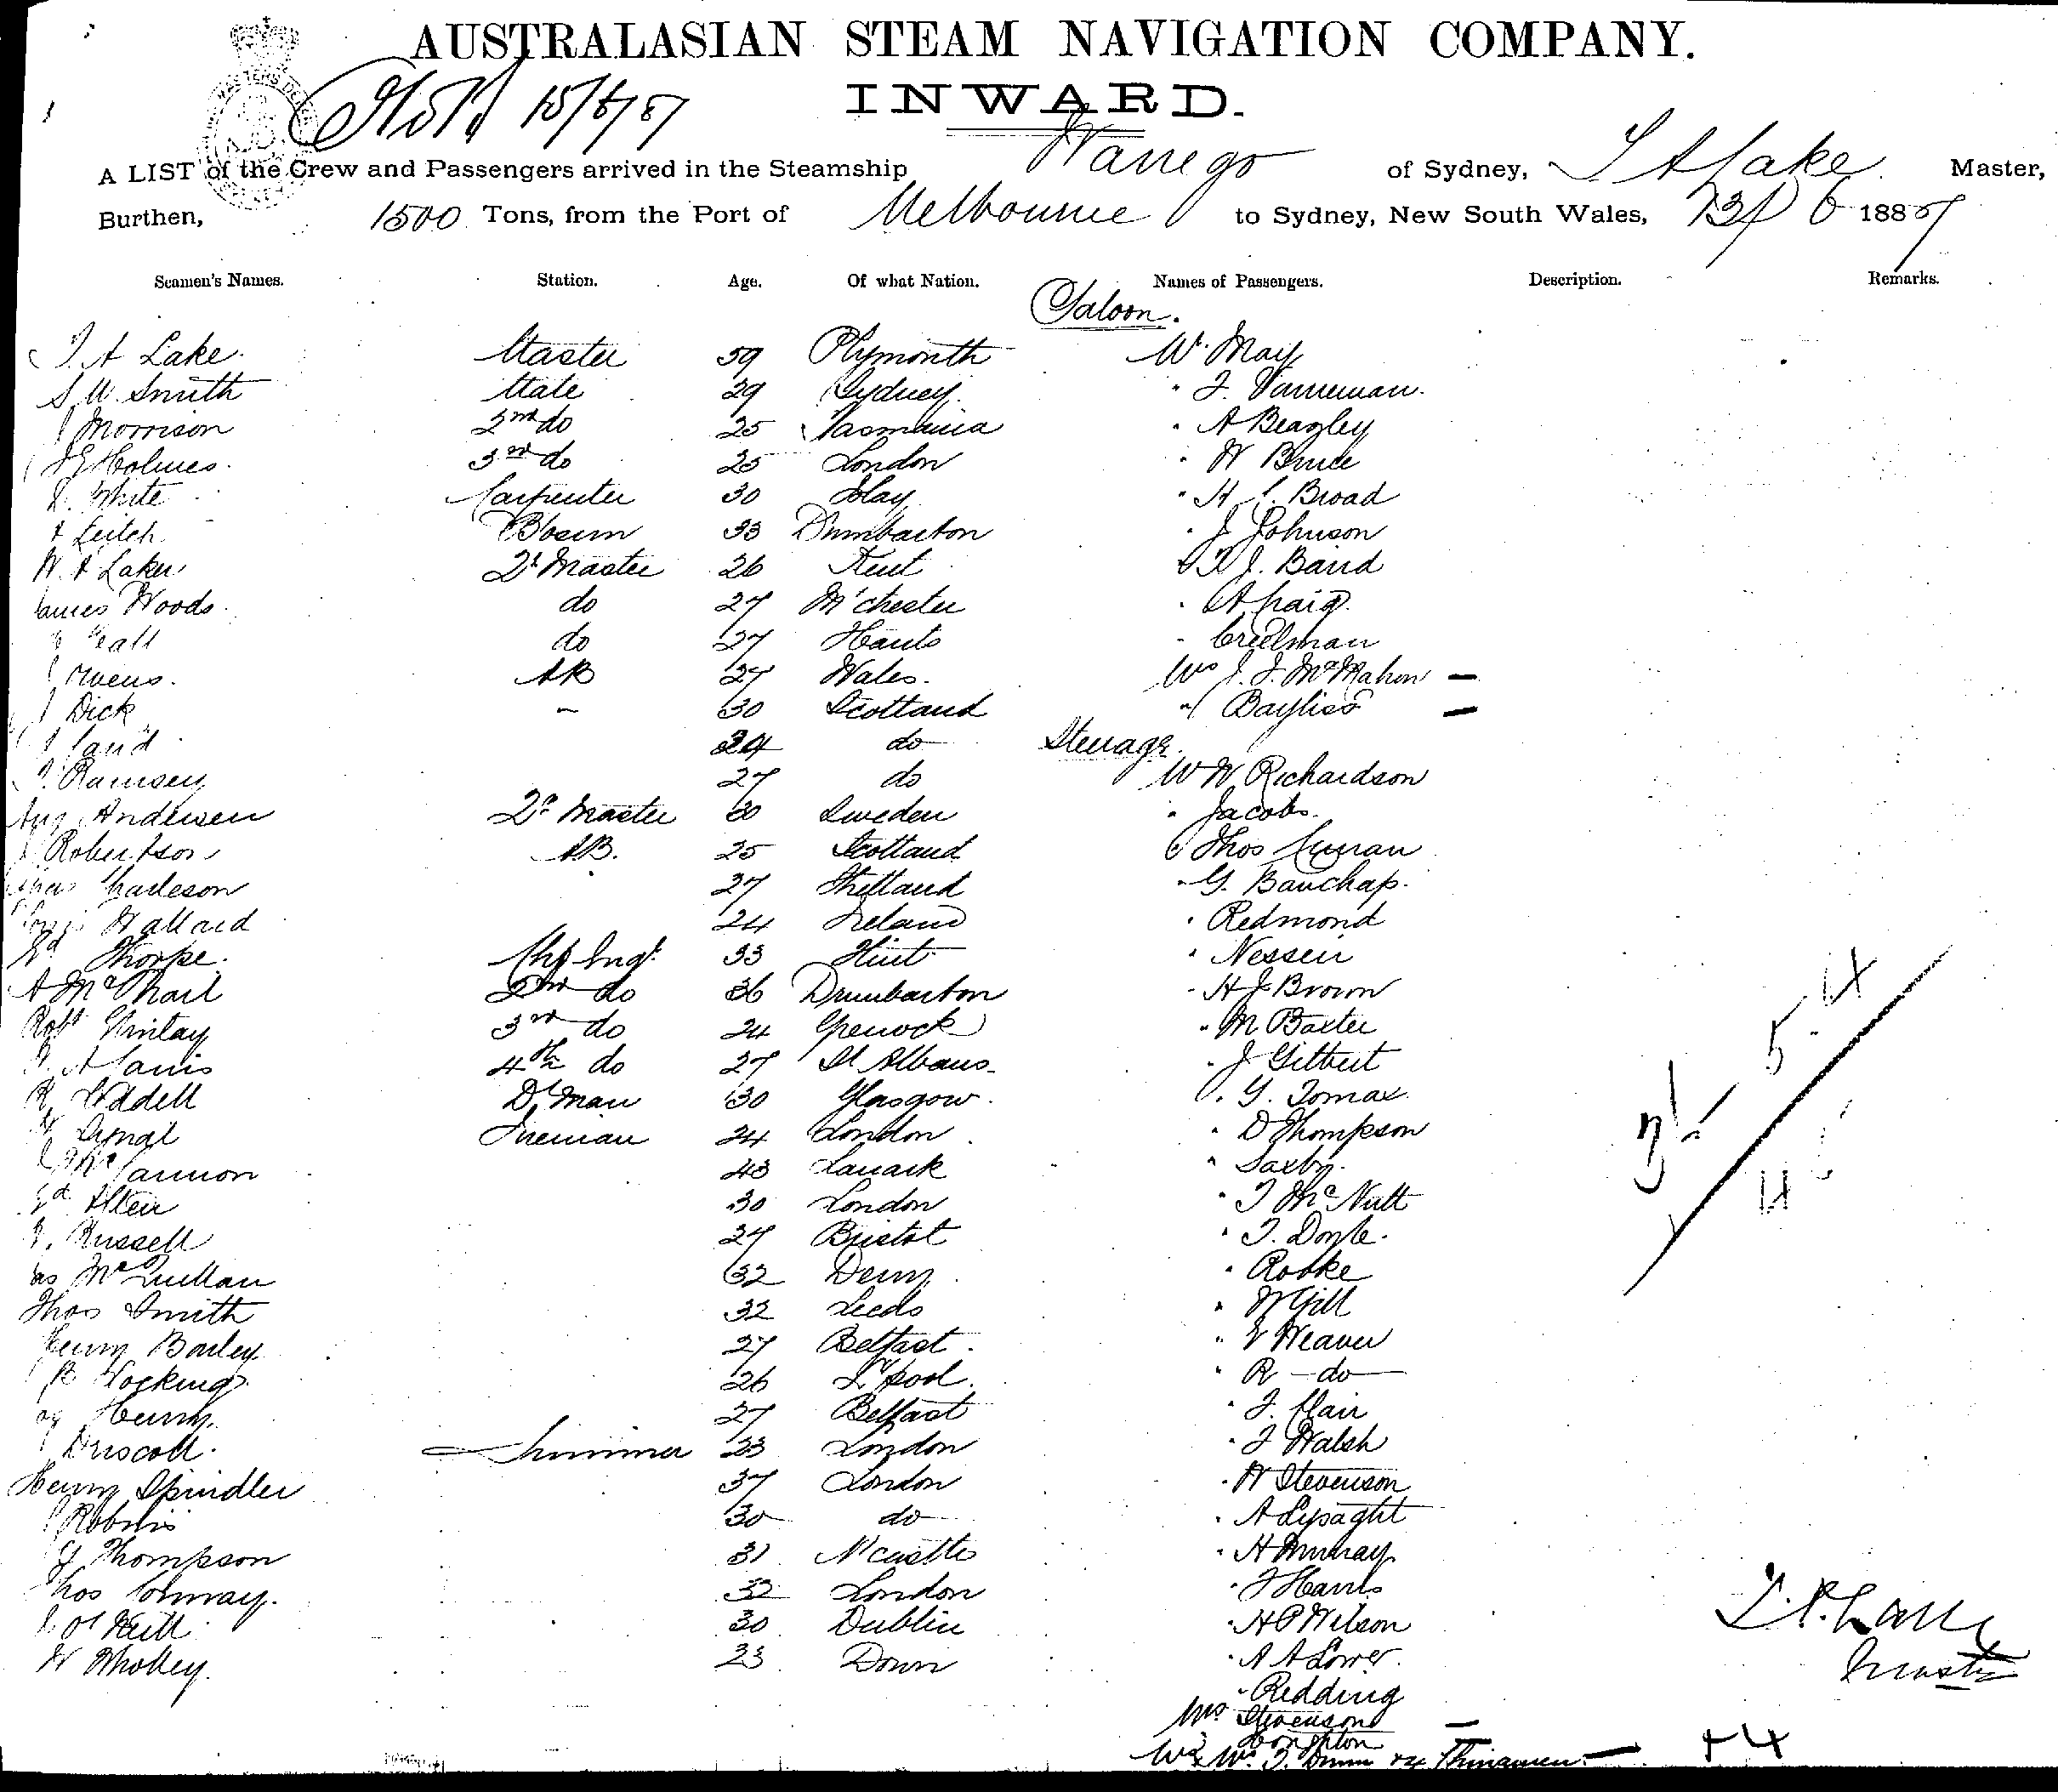 AUSTRALASIAN STEAM NAVIGATION COMPANY.
INWARD.
15/6/87
A LIST of the Crew and Passengers arrived in the Steamship Warrego of Sydney, T A Lake Master,
Burthen, 1500 Tons, from the Port of Melbourne to Sydney, New South Wales, 13/6 1887
Seamen's Names. Station. Age. Of what Nation. Names of Passengers. Description. Remarks.
Saloon.
T. A Lake Master 59 Plymouth W. May
S W. Smith Mate 29 Sydney " J. Vanneman.
J Morrison 2nd do 25 Tasmania " A Beazley
Holmes. 3rd do 25 London " W Bruce
White Carpenter 30 Islay " H C. Broad
Leitch Bosun 33 Dumbarton " J Johnson
W. A Laker Qr Master 26 Kent J. Baird
James Woods. do 27 M'chester
do 27 Hants " Creelman
Owens. AB 27 Wales. Mrs J. F. McMahon —
J Dick 30 Scotland " Bayliss —
24 do Steerage.
Ramsey 27 do W W Richardson
Aug. Andersen Qr Master 30 Sweden " Jacobs.
Robertson AB. 25 Scotland Thos Curran
Charleson 27 Shetland " G. Bauchap.
Hallard 24 Ireland " Redmond
Ed Thorpe. Chf Engr 33 Flint " Nessen
A McPhail 2nd do 36 Dumbarton " H J Brown
Robt Finlay 3rd do 24 Greenock " M Baxter
Harris 4th do 27 St Albans " J Gilbert
R. Liddell Dk Man 30 Glasgow. " G. Tomax.
Fireman 24 London " D Thompson
43 Lanark " Saxby.
Ed. Allen 30 London " T McNutt
Russell 27 Bristol " T. Doyle.
Jas McQuillan 32 Derry " Rooke
Thos Smith 32 Leeds " W Gill
Henry Bailey 27 Belfast. " Weaver
Hocking 26 L'pool. " R — do —
Henry 27 Belfast " J. Hair
Driscoll. Trimmer 23 London " J Walsh
Henry Spindler 37 London " W Stevenson
Robins 30 do " A Lysaght
Thompson 31 N'castle " H Murray
Thos Conway. 32 London " J Harris
O'Neill 30 Dublin " H P Wilson
W Wholley. 23 Down " A A Lower.
" Redding
T. A. Lake
Master
Mrs Stevenson —
Houghton
Chinamen —
+4